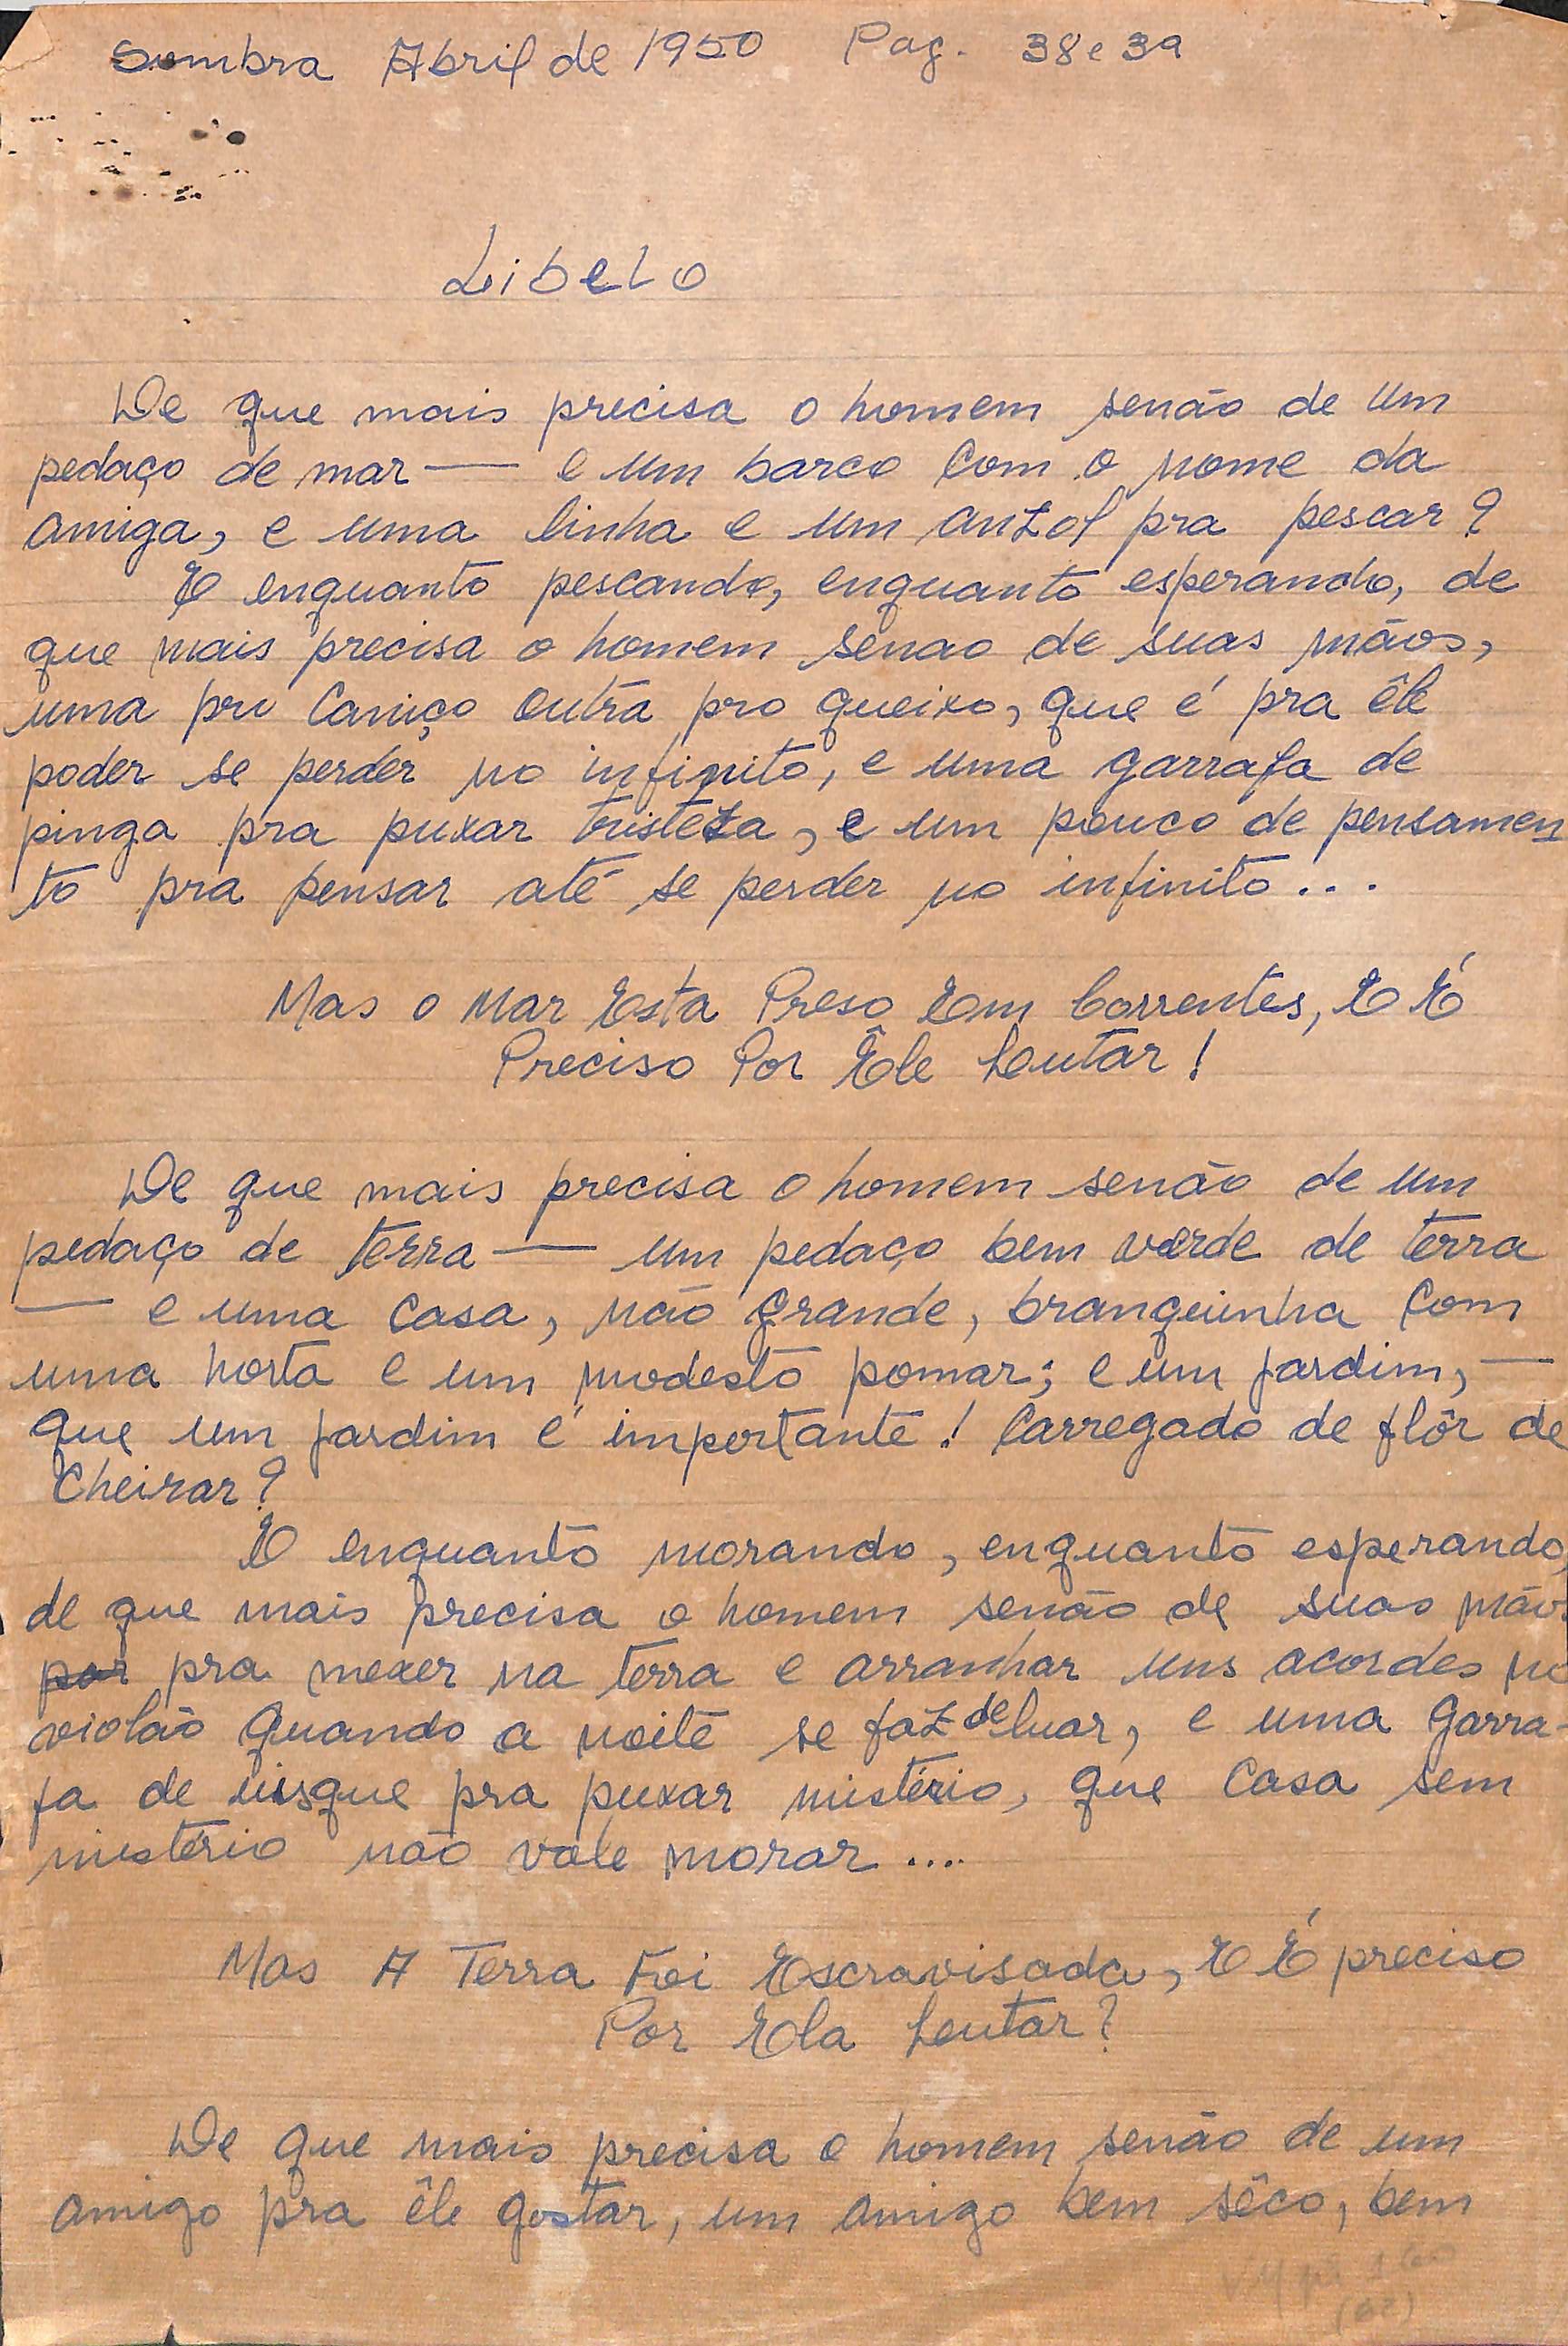 Sombra Abril de 1950 Pag. 38 e 39
Libelo
De que mais precisa o homem senão de um
pedaço de mar — e um barco com o nome da
amiga, e uma linha e um anzol pra pescar?
E enquanto pescando, enquanto esperando, de
que mais precisa o homem senao de suas mãos,
uma pro caniço outra pro queixo, que é pra êle
poder se perder no infinito, e uma garrafa de
pinga pra puxar tristeza, e um pouco de pensamen
to pra pensar até se perder no infinito...
Mas o Mar Esta Preso Em Correntes, E É
Preciso Por Êle Lutar!
De que mais precisa o homem senão de um
pedaço de terra — um pedaço bem verde de terra
— e uma casa, não grande, branquinha com
uma horta e um modesto pomar; e um jardim, —
que um jardim é importante! Carregado de flôr de
cheirar?
E enquanto morando, enquanto esperando,
de que mais precisa o homem senão de suas mãos
por pra mexer na terra e arranhar uns acordes no
violão quando a noite se faz de luar, e uma garra-
fa de uisque pra puxar mistério, que casa sem
mistério não vale morar....
Mas A Terra Foi Escravisada, E É preciso
Por Ela Lutar?
De que mais precisa o homem senão de um
amigo pra êle gostar, um amigo bem sêco, bem